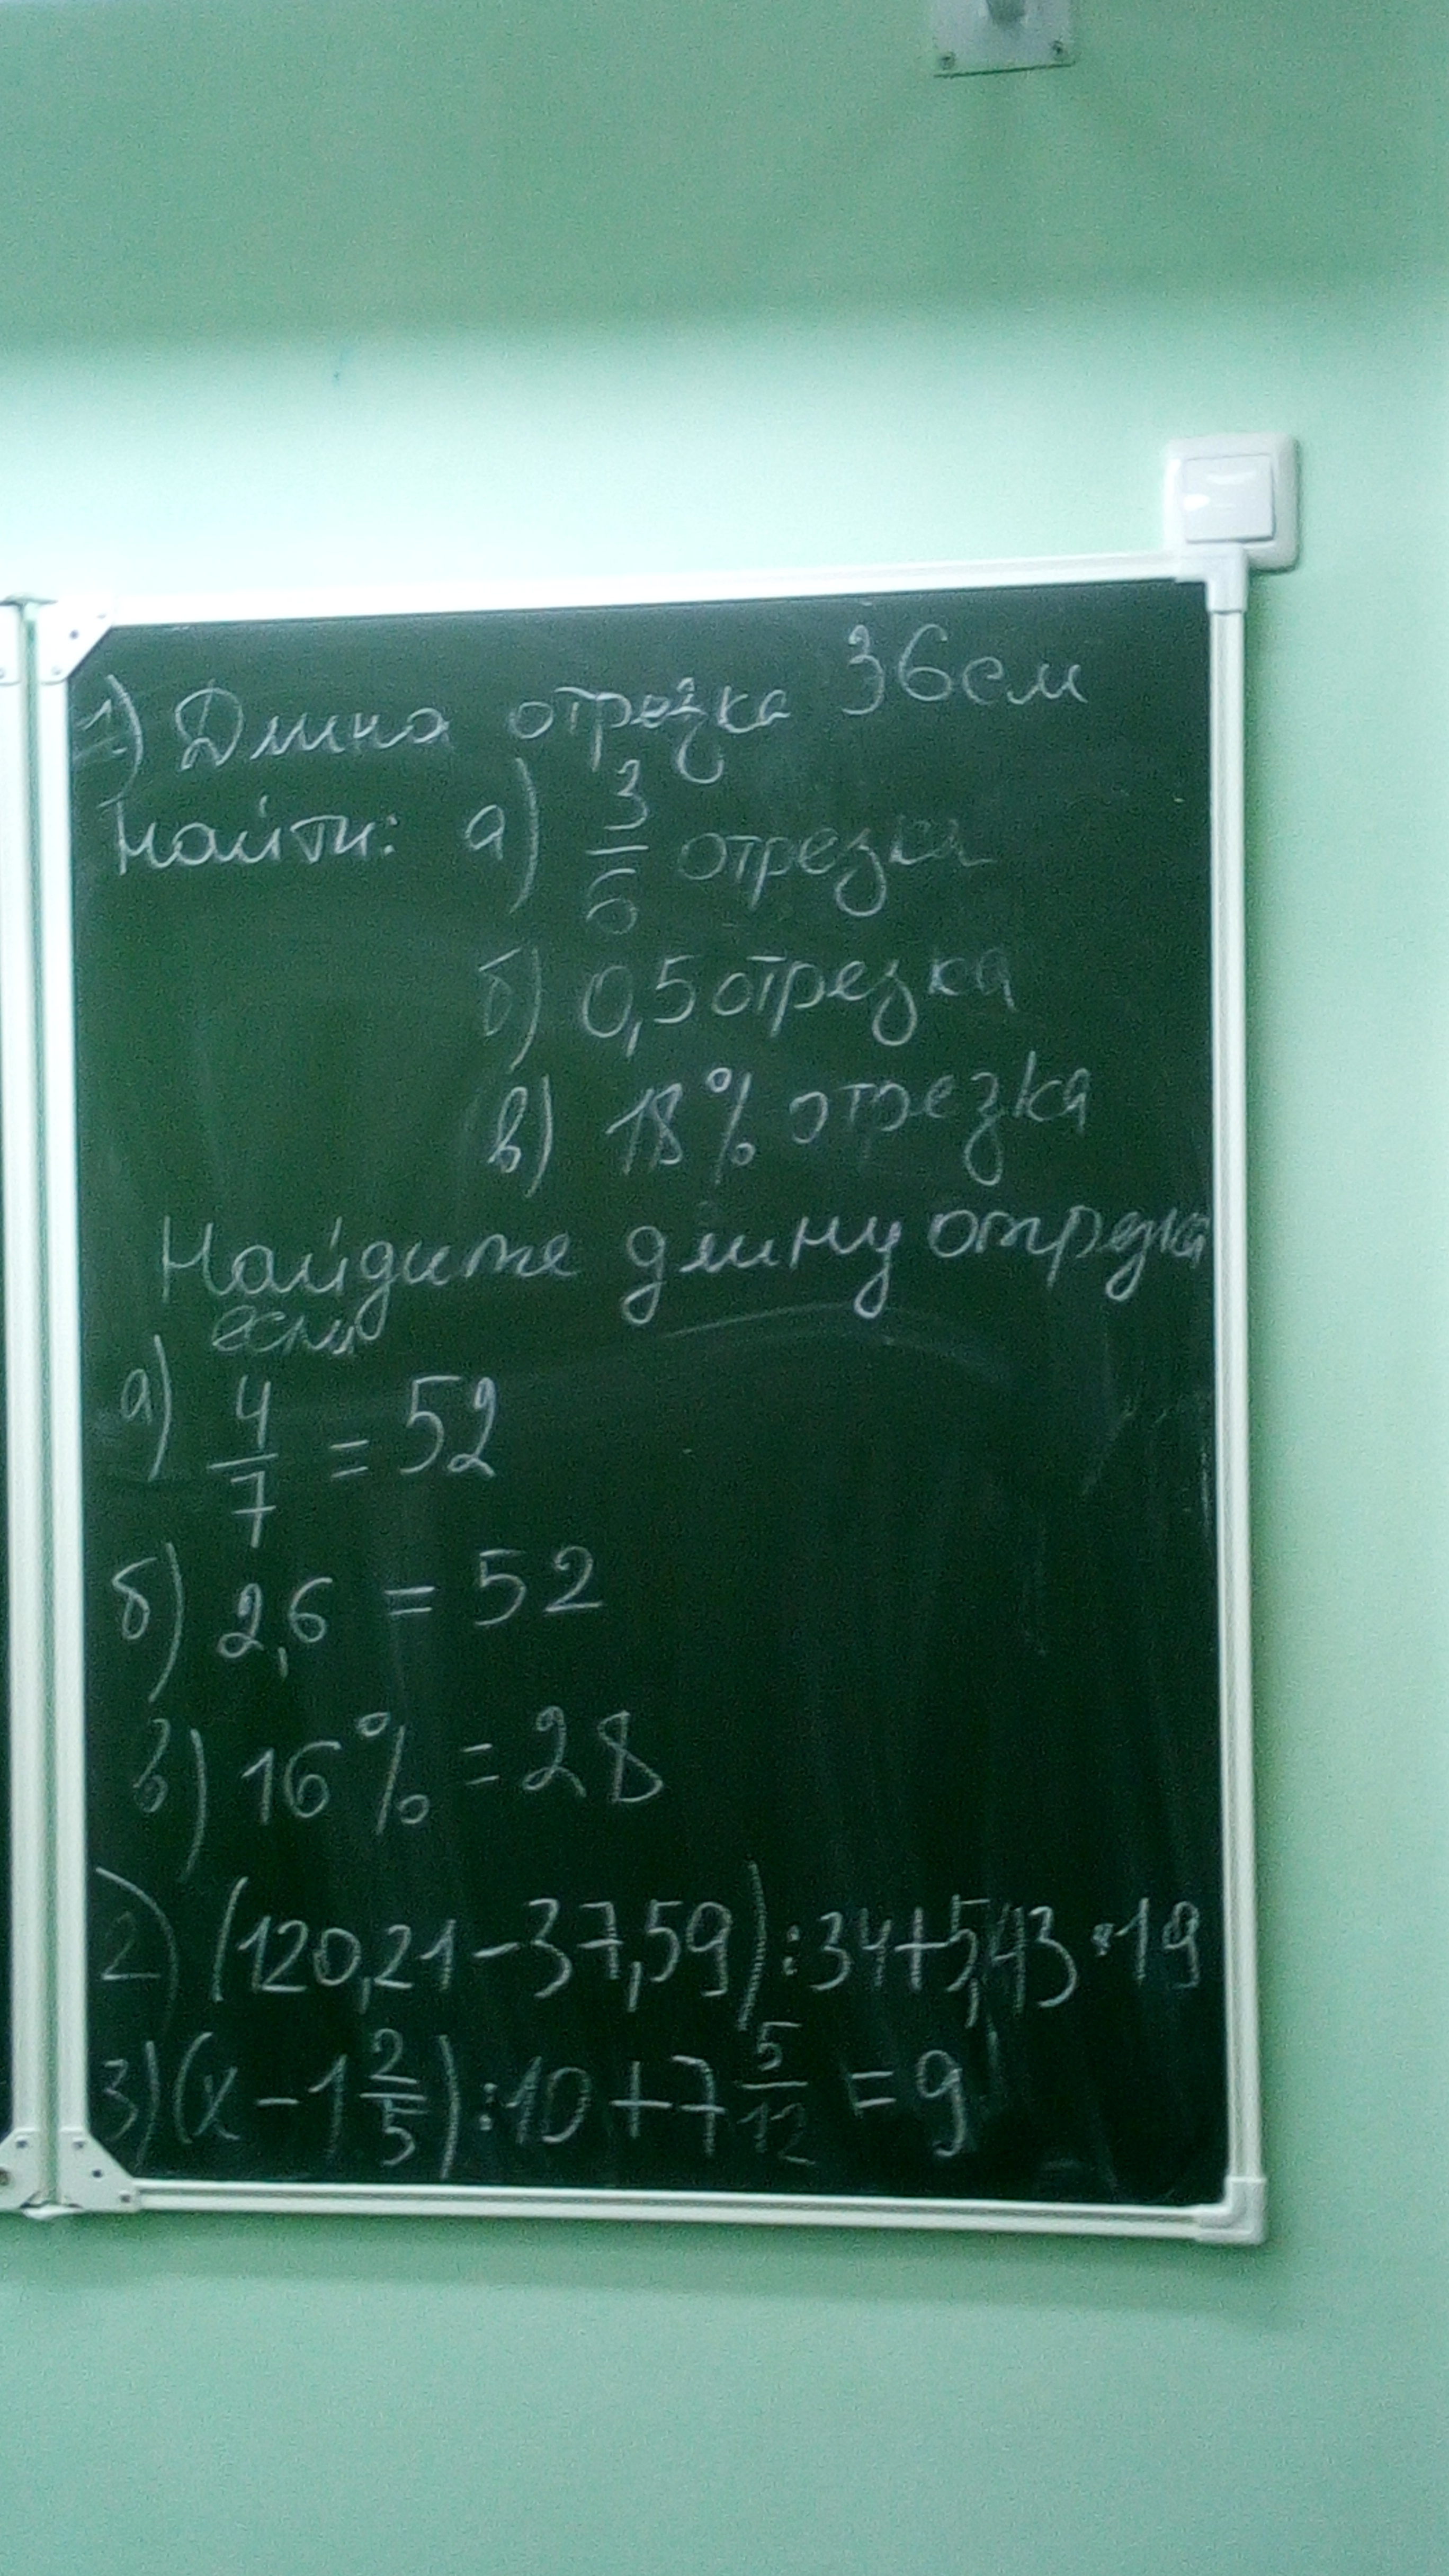 1) Длина отрезка 36см
Найти: а) 3/6 отрезка
б) 0,5 отрезка
в) 18% отрезка
Найдите длину отрезка
если
а) 4/7 = 52
б) 2,6 = 52
в) 16% = 28
2) (120,21-37,59):34+5,43·19
3) (x-1 2/5):10+7 5/12=9